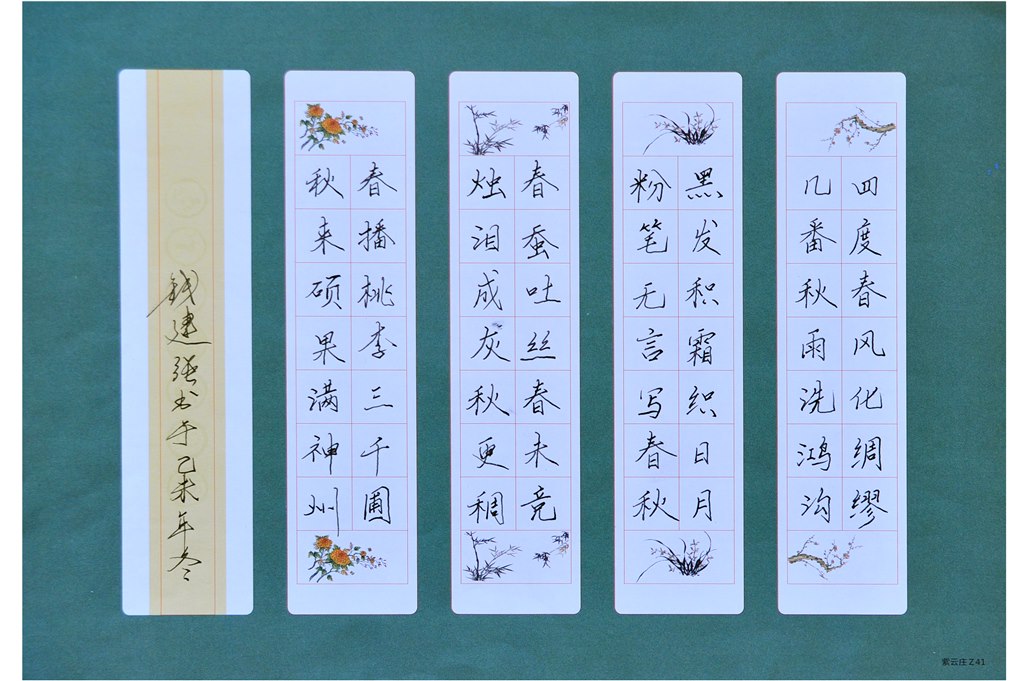 四度春风化绸缪
几番秋雨洗鸿沟
黑发积霜织日月
粉笔无言写春秋
春蚕吐丝春未竞
烛泪成灰秋更稠
春播桃李三千圃
秋来硕果满神州
钱建强书于己未年冬
紫云庄Z41